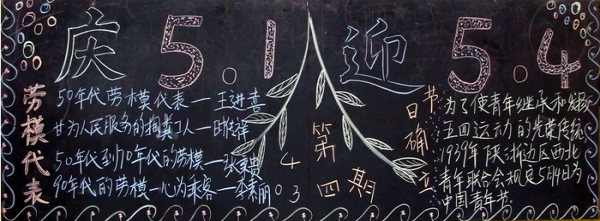 庆5.1迎5.4
劳模代表
50年代劳模代表—王进喜
甘为人民服务的掏粪工人—时传祥
50年代到70年代的劳模—张秉贵
90年代的劳模一心为乘客—李素丽
第四期
04
03
节日确立
为了使青年继承和发扬
五四运动的光荣传统
1939年陕浙边区西北
青年联合会规定5月4日为
中国青年节